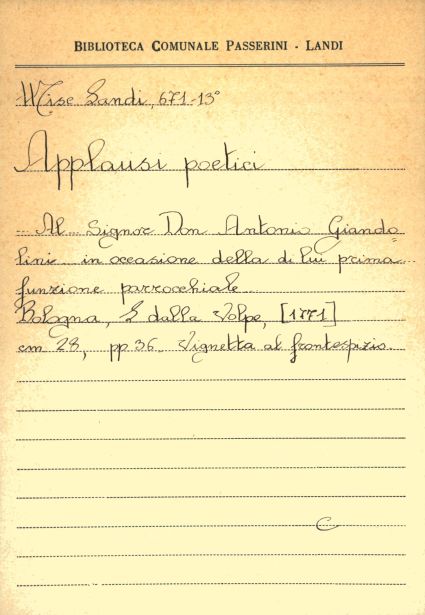 BIBLIOTECA COMUNALE PASSERINI - LANDI
Misc Landi, 671-13°
Applausi poetici
Al Signor Don Antonio Giando=
lini in occasione della di lui prima
funzione parrocchiale
Bologna, L dalla Volpe, [1771]
cm 28, pp 36. Vignetta al frontespizio
C